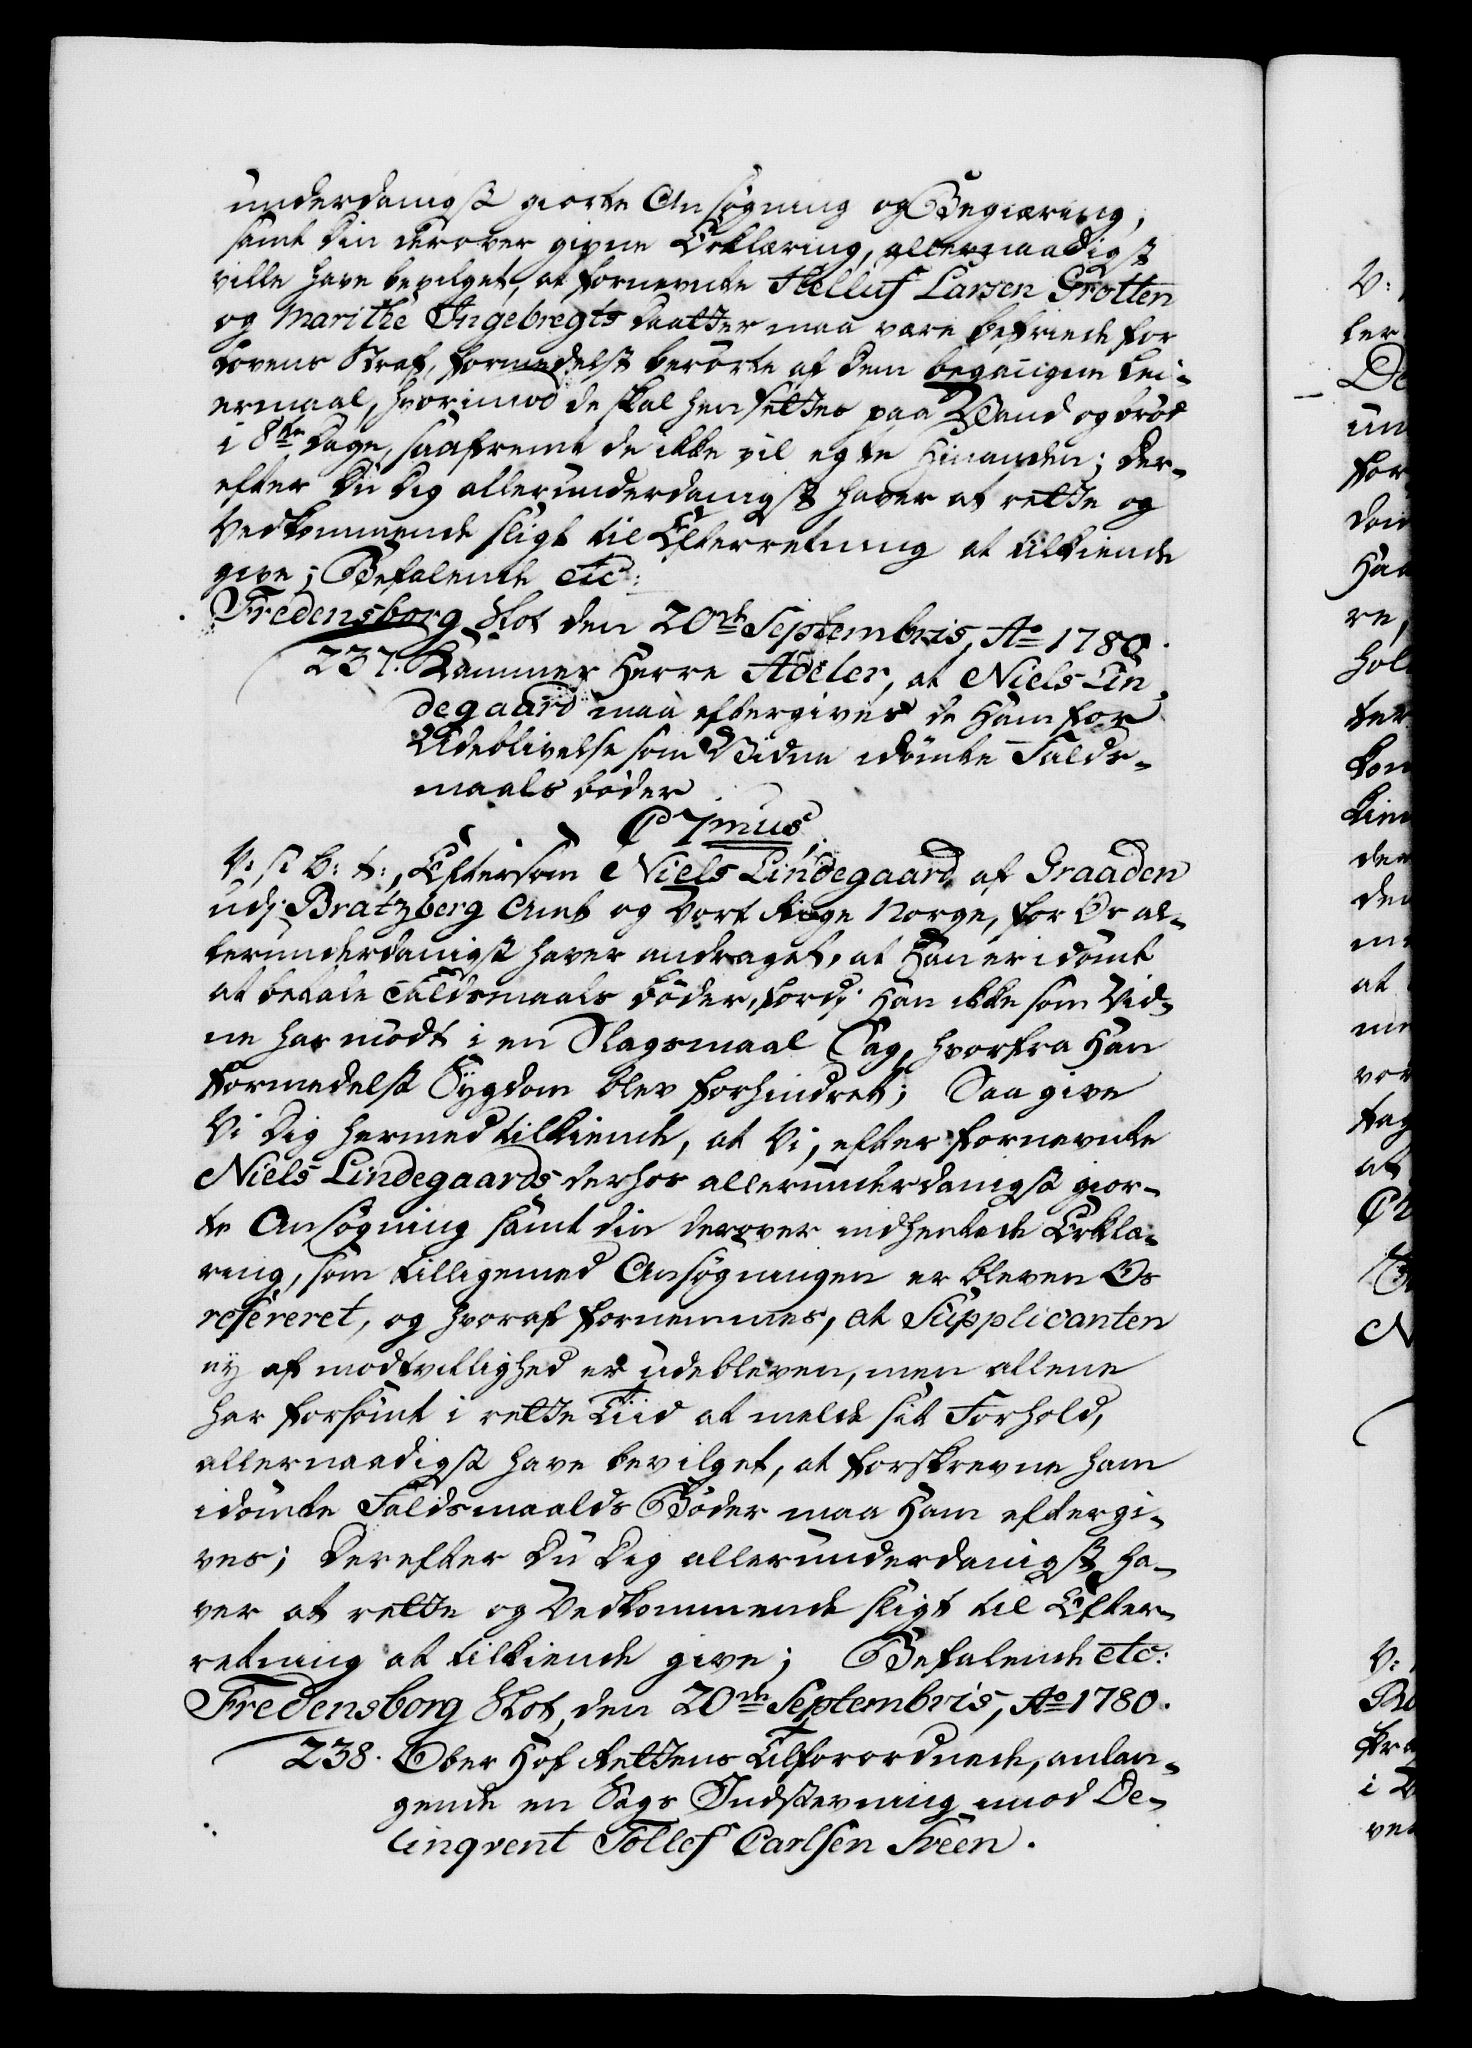 underdanigst giorte Ansøgning og Begiæring,
samt din derover givne Erklæring, allernaadigst
ville have bevilget, at fornevnte Helluf Larsen Grotten
og Marithe Ingebregts daatter maa være befriede for
Lovens Straf, formedelst berørte af dem begangne Lei-
ermaal, hvorimod de skal hensættes paa Vand og brød
i 8te dage, saafremt de ikke vil egte hinanden; der-
efter du dig allerunderdanigst haver at rette og
Vedkommende sligt til Efterretning at tilkiende
give; Befalende etc:
Fredensborg Slot den 20de Septembris, Ao 1780.
237. Kammer Herre Adeler, at Niels Lin-
degaard maa eftergives de Ham for
Udeblivelse som Vidne idømte Falds-
maals bøder
C 7mus,
V: s: b: t:, Eftersom Niels Lindegaard af Graaden
udj Bratzberg Amt og Vort Rige Norge, for Os al-
lerunderdanigst haver andraget, at Han er idømt
at betale Faldsmaals bøder, fordj Han ikke som Vid-
ne har mødt i en Slagsmaal Sag, hvorfra Han
formedelst Sygdom blev forhindret; Saa give
Vi dig hermed tilkiende, at Vi, efter fornevnte
Niels Lindegaards derhos allerunderdanigst gior-
te Ansøgning samt din derover indhentede Erklæ-
ring, som tilligemed Ansøgningen er bleven Os
refereret, og hvoraf fornemmes, at Supplicanten
ej af modtvillighed er udebleven, men allene
har forsømt i rette Tiid at melde sit Forhold,
allernaadigst have bevilget, at forskrevne ham
idømte Faldsmaalds Bøder maa Ham eftergi-
ves; Derefter du dig allerunderdanigst ha-
ver at rette og Vedkommende sligt til Efter-
retning at tilkiende give; Befalende etc:
Fredensborg Slot, den 20de Septembris, Ao 1780.
238. Ober Hof Rettens Tilforordnede, anlan-
gende en Sags Indstevning imod De-
linqvent Tollef Carlsen Freen.